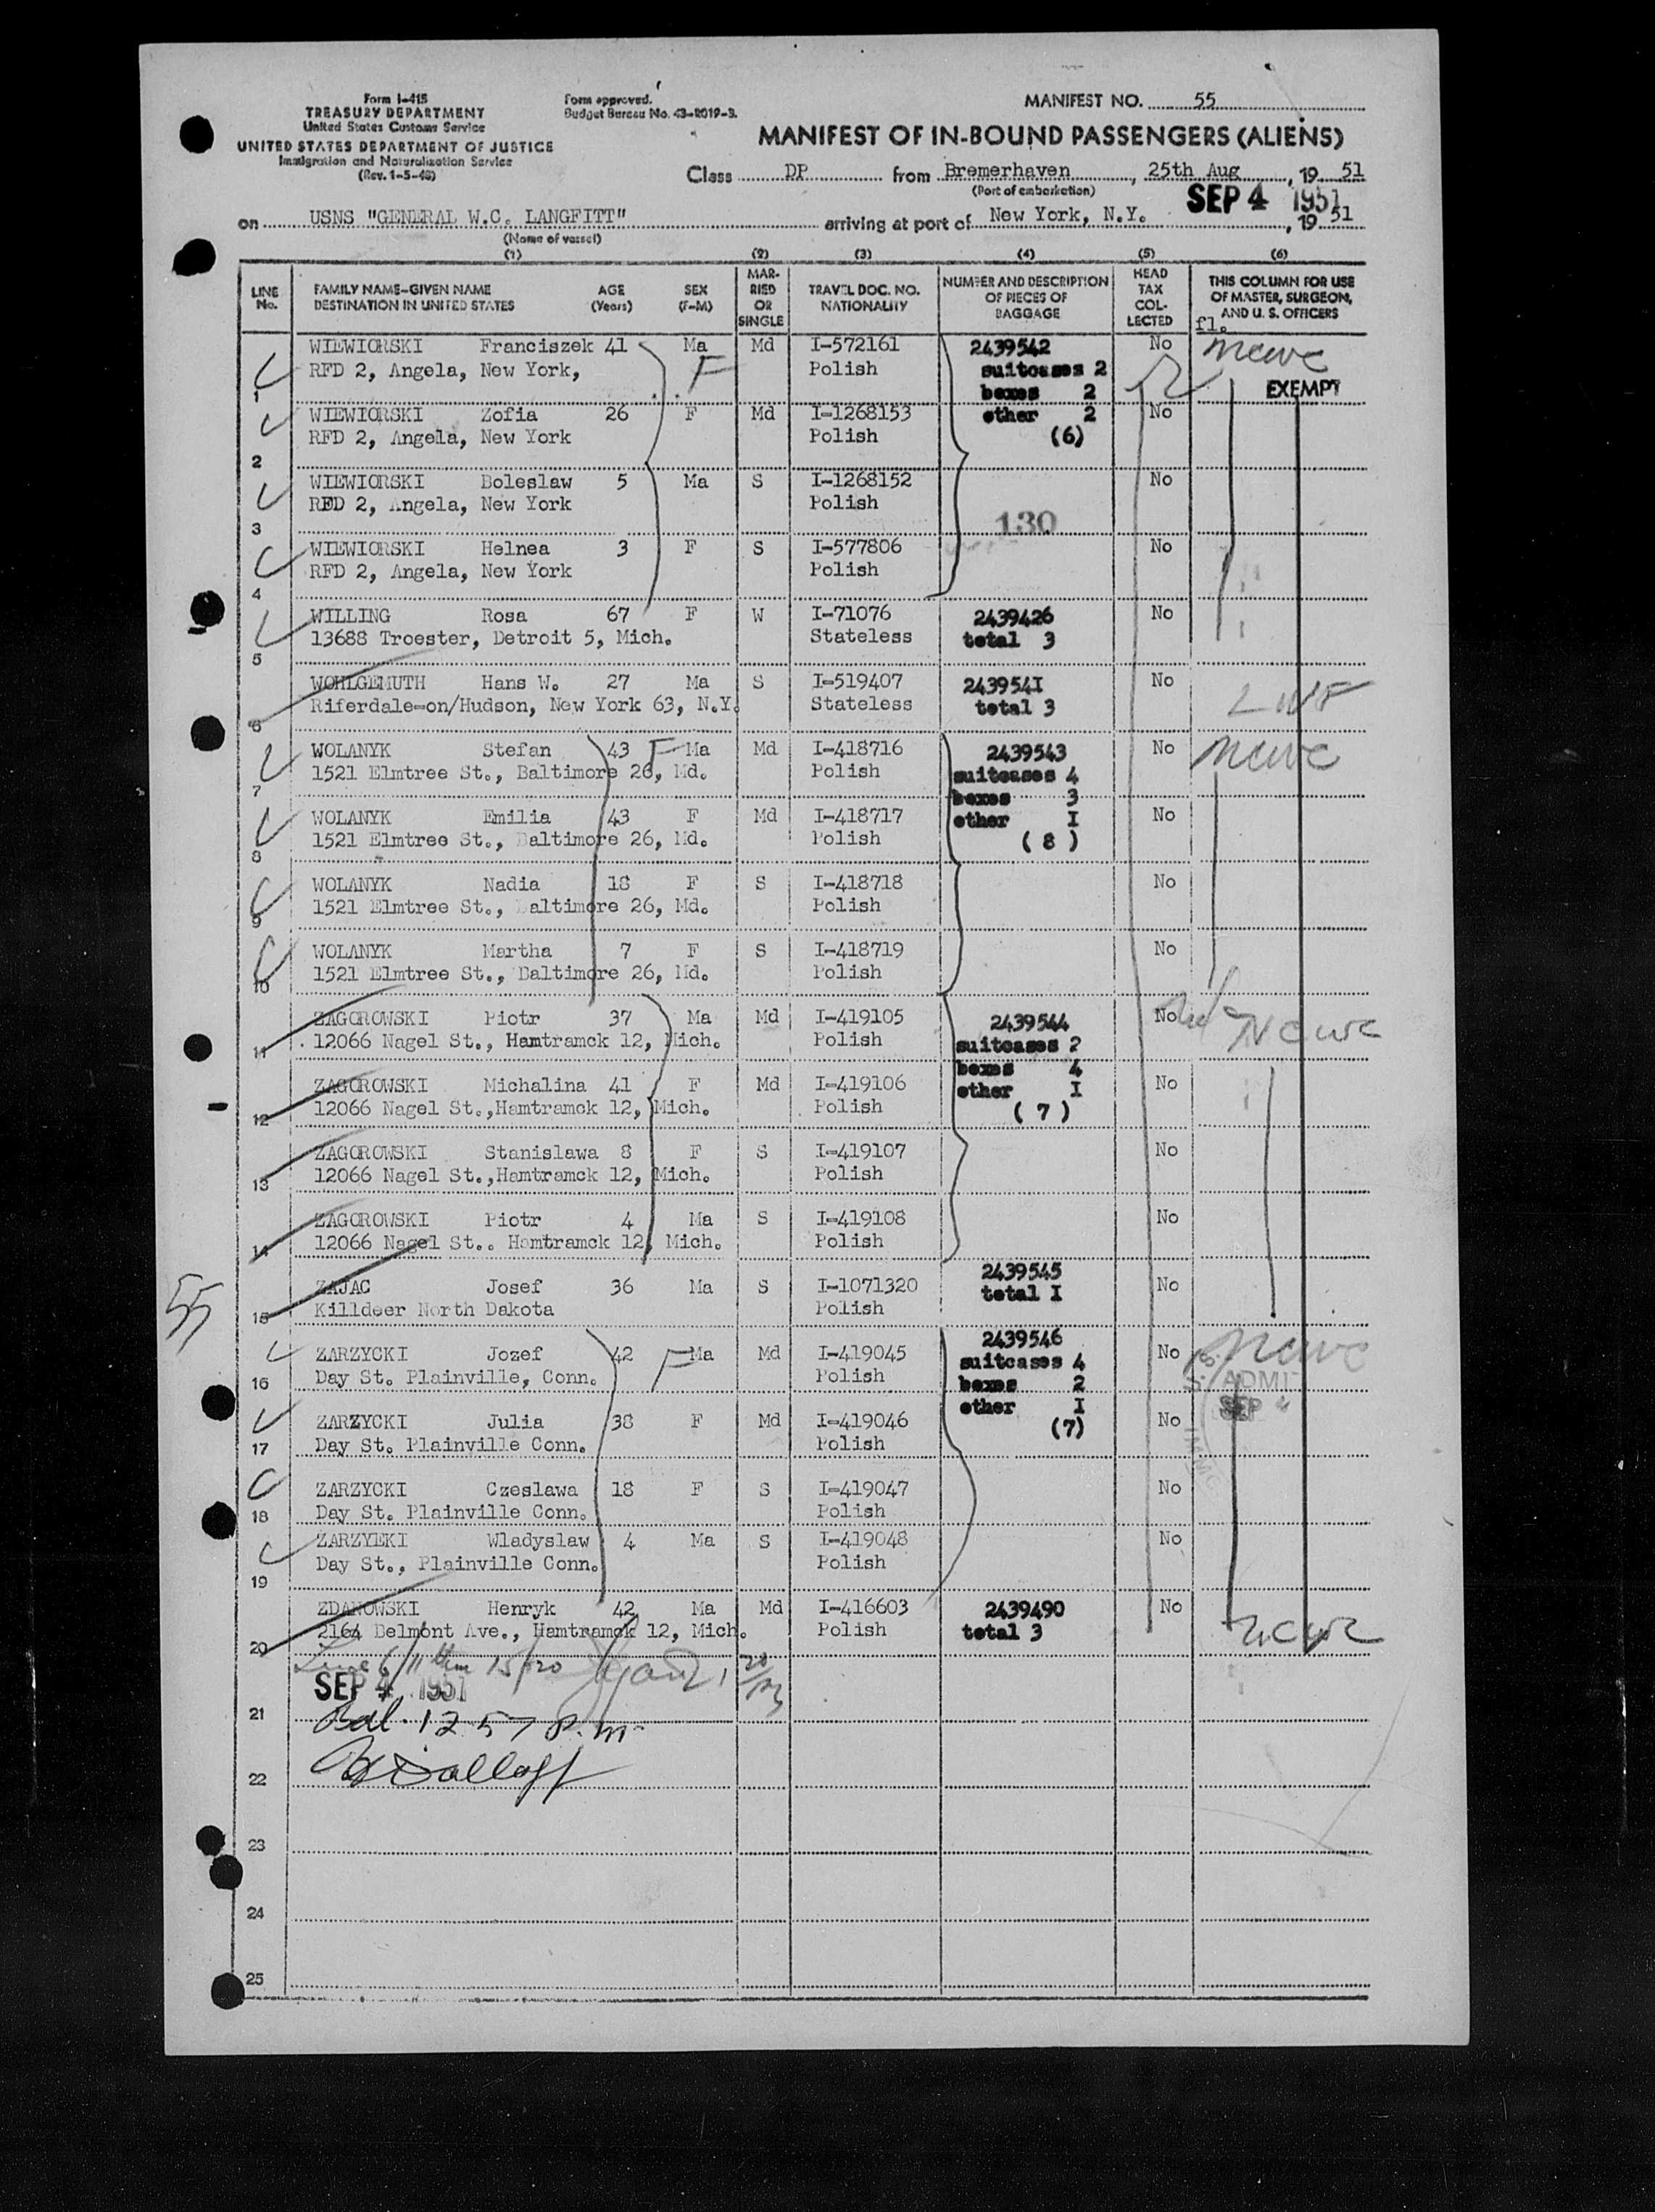 Form I-415
TREASURY DEPARTMENT
United States Customs Service
UNITED STATES DEPARTMENT OF JUSTICE
Immigration and Naturalization Service
(Rev. 1-5-48)
Form approved.
Budget Bureau No. 43-R019-3.
MANIFEST NO. 55
MANIFEST OF IN-BOUND PASSENGERS (ALIENS)
Class DP from Bremerhaven, 25th Aug, 1951
(Port of embarkation)
SEP 4 1951
on USNS "GENERAL W.C. LANGFITT" arriving at port of New York, N.Y., 1951
(Name of vessel)
(1) (2) (3) (4) (5) (6)
LINE No. FAMILY NAME-GIVEN NAME DESTINATION IN UNITED STATES AGE (Years) SEX (F-M) MARRIED OR SINGLE TRAVEL DOC. NO. NATIONALITY NUMBER AND DESCRIPTION OF PIECES OF BAGGAGE HEAD TAX COLLECTED THIS COLUMN FOR USE OF MASTER, SURGEON, AND U. S. OFFICERS
fl.
WIEWIORSKI Franciszek 41 Ma Md I-572161 2439542 No ncwc
RFD 2, Angela, New York, F Polish suitcases 2
1 boxes 2 EXEMPT
WIEWIORSKI Zofia 26 F Md I-1268153 other 2 No
RFD 2, Angela, New York Polish (6)
2
WIEWIORSKI Boleslaw 5 Ma S I-1268152 No
RED 2, Angela, New York Polish
3 130
WIEWIORSKI Helnea 3 F S I-577806 No
RFD 2, Angela, New York Polish
4
WILLING Rosa 67 F W I-71076 2439426 No
13688 Troester, Detroit 5, Mich. Stateless total 3
5
WOHLGEMUTH Hans W. 27 Ma S I-519407 243954I No
Riferdale-on/Hudson, New York 63, N.Y. Stateless total 3 LWF
6
WOLANYK Stefan 43 F Ma Md I-418716 2439543 No ncwc
1521 Elmtree St., Baltimore 26, Md. Polish suitcases 4
7 boxes 3
WOLANYK Emilia 43 F Md I-418717 other I No
1521 Elmtree St., Baltimore 26, Md. Polish ( 8 )
8
WOLANYK Nadia 18 F S I-418718 No
1521 Elmtree St., Baltimore 26, Md. Polish
9
WOLANYK Martha 7 F S I-418719 No
1521 Elmtree St., Baltimore 26, Md. Polish
10
ZAGOROWSKI Piotr 37 Ma Md I-419105 2439544 No
12066 Nagel St., Hamtramck 12, Mich. Polish suitcases 2 NCWC
11 boxes 4
ZAGOROWSKI Michalina 41 F Md I-419106 other I No
12066 Nagel St.,Hamtramck 12, Mich. Polish ( 7 )
12
ZAGOROWSKI Stanislawa 8 F S I-419107 No
12066 Nagel St.,Hamtramck 12, Mich. Polish
13
ZAGOROWSKI Piotr 4 Ma S I-419108 No
12066 Nagel St.. Hamtramck 12, Mich. Polish
14
ZAJAC Josef 36 Ma S I-1071320 2439545 No
Killdeer North Dakota Polish total I
15
55
ZARZYCKI Jozef 42 F Ma Md I-419045 2439546 No ncwc
Day St. Plainville, Conn. Polish suitcases 4
16 boxes 2 ADMI
ZARZYCKI Julia 38 F Md I-419046 other I No SEP 4
Day St. Plainville Conn. Polish (7)
17
ZARZYCKI Czeslawa 18 F S I-419047 No
Day St. Plainville Conn. Polish
18
ZARZYEKI Wladyslaw 4 Ma S I-419048 No
Day St., Plainville Conn. Polish
19
ZDANOWSKI Henryk 42 Ma Md I-416603 2439490 No
2164 Belmont Ave., Hamtramck 12, Mich. Polish total 3 ncwc
20
SEP 4 1951
21
Bal. 12 57 P.m.
22
23
24
25